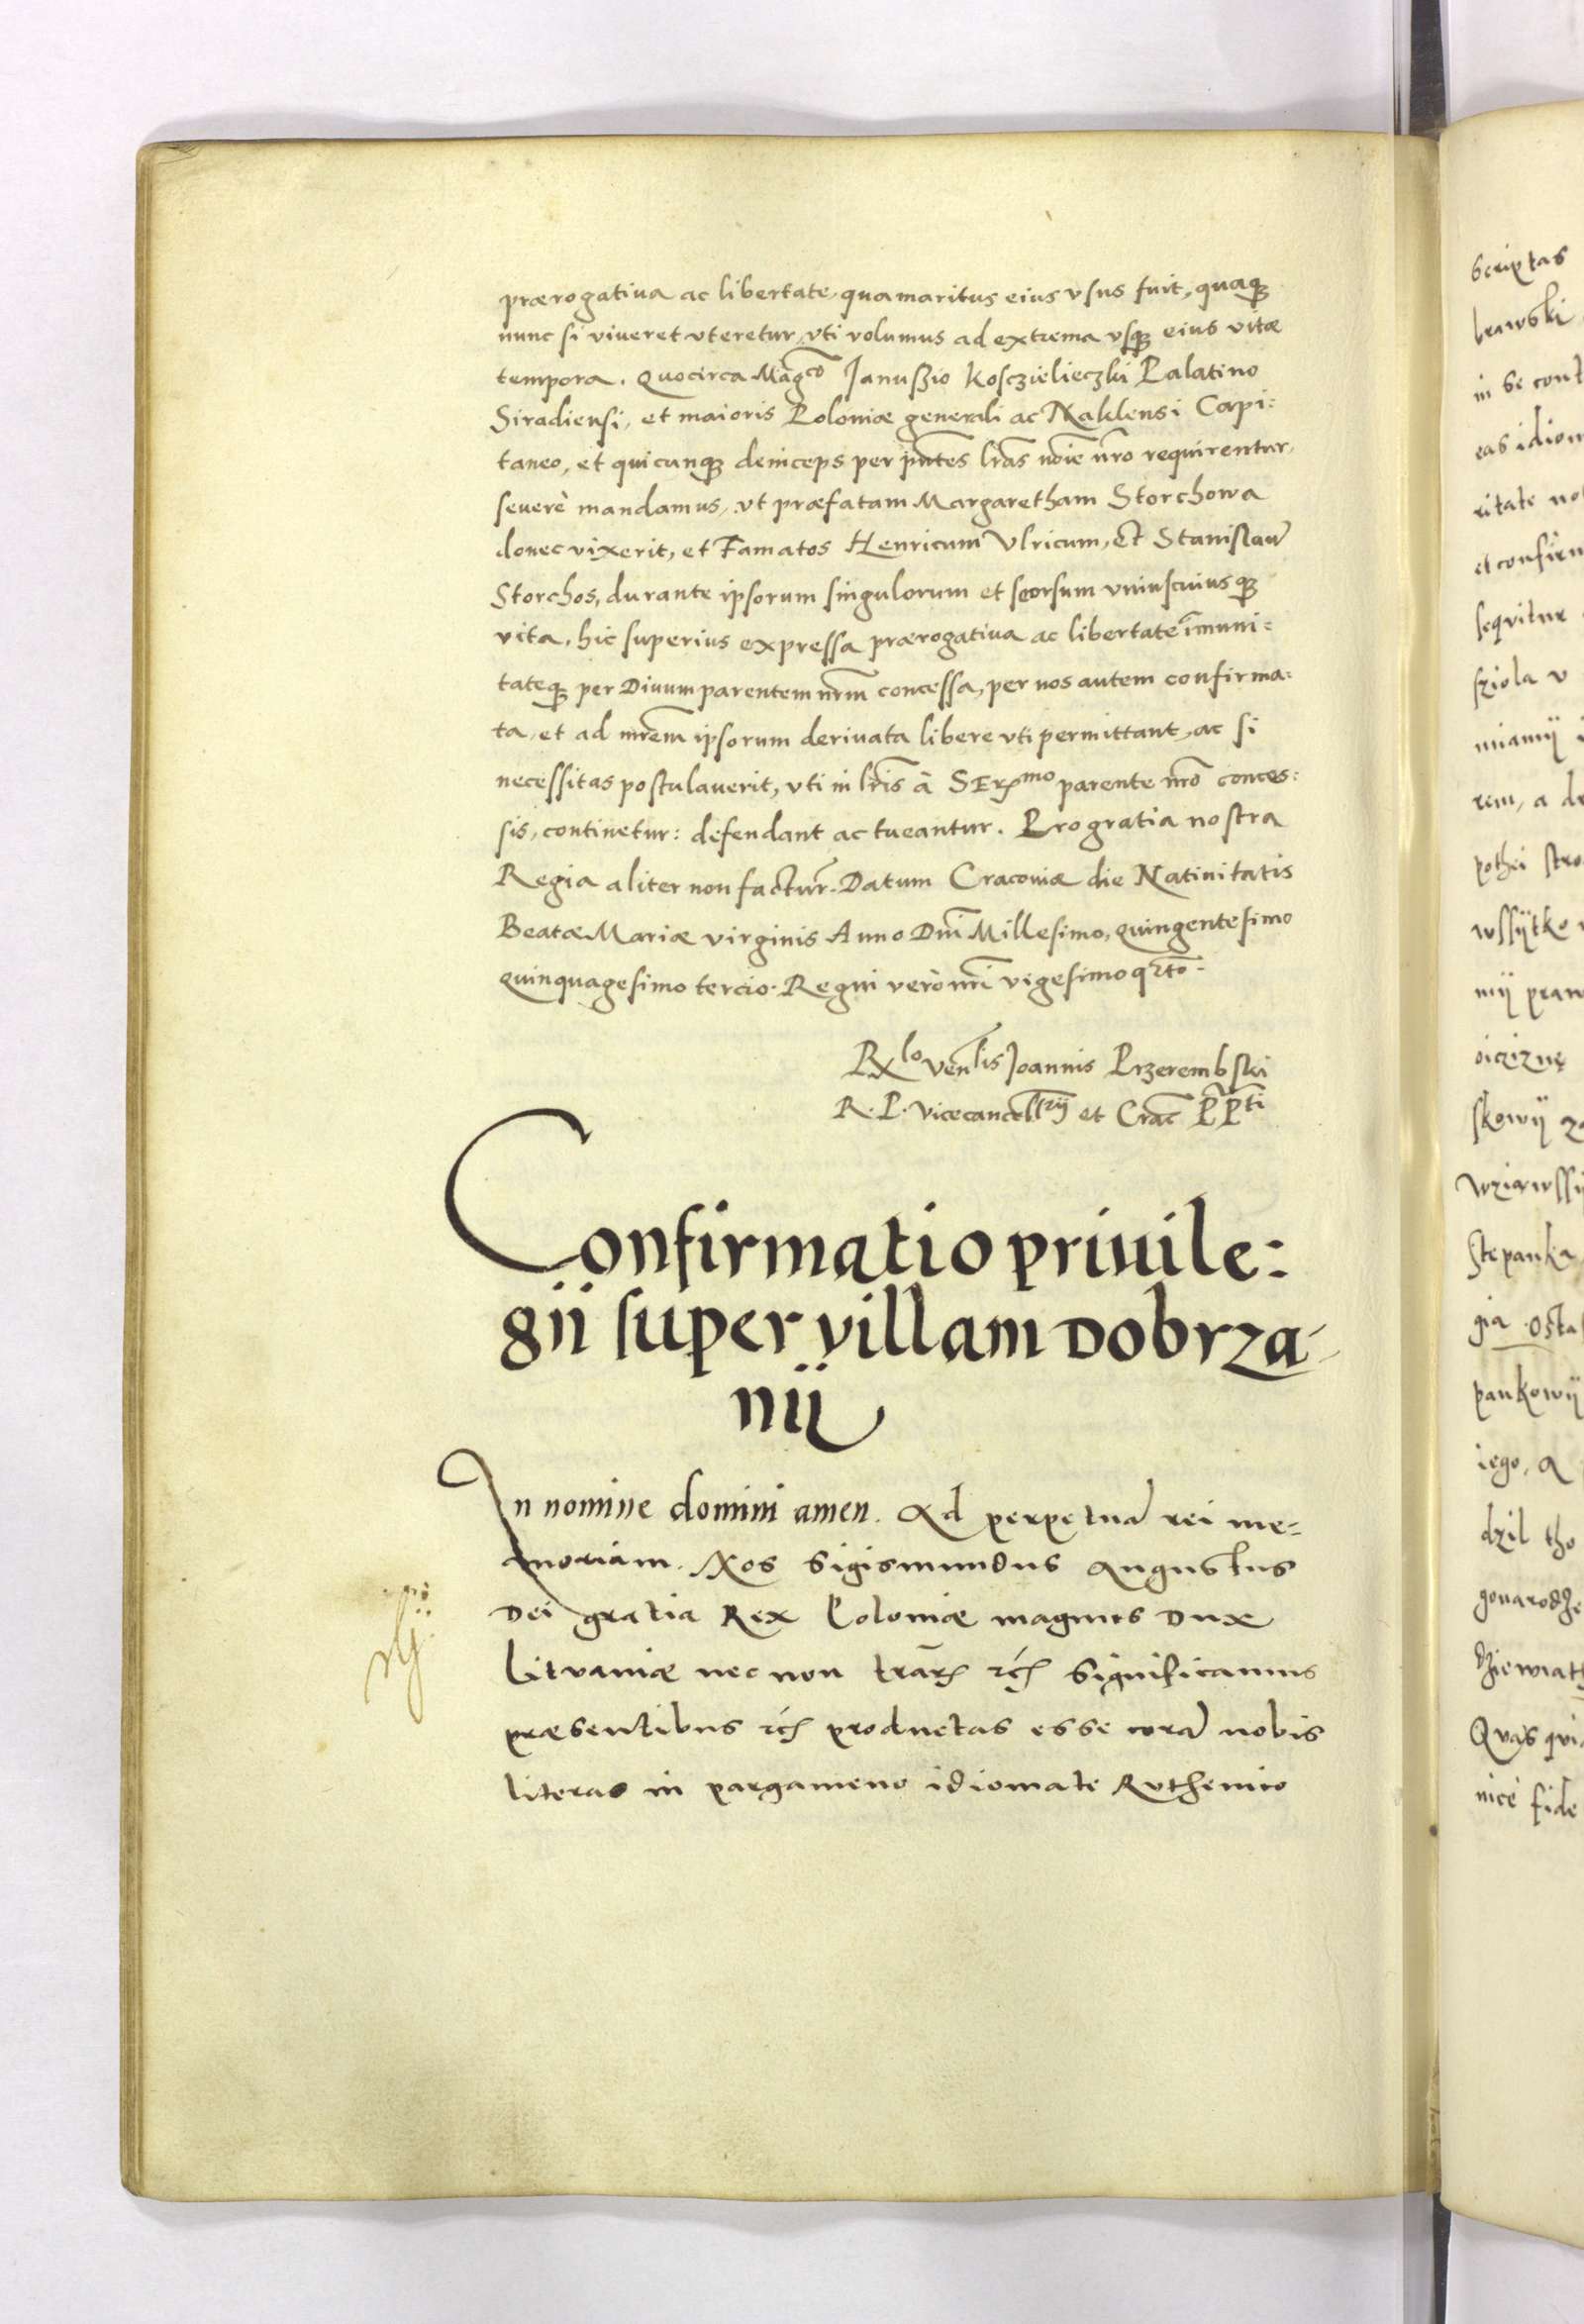 prærogatiua ac libertate, qua maritus eius vsus fuit, quaqꝫ
nunc si viueret vteretur, vti volumus ad extrema vsqꝫ eius vitæ
tempora. Quocirca Mag̃co Janußio Kosczielieczki Palatino
Siradiensi, et maioris Poloniæ generali ac Naklensi Capi:
taneo, et quicunqꝫ deinceps per pñtes lr̃as noĩe nr̃o requirentur,
seuerè mandamus, vt præfatam Margaretham Storchowa
donec vixerit, et Famatos Henricum Vlricum, et Stanislaũ
Storchos, durante ipsorum singulorum et seorsum vniuscuiusqꝫ
vita, hic superius expressa prærogatiua ac libertate im̃uni:
tateqꝫ per Diuum parentem nr̃m concessa, per nos autem confirma:
ta, et ad mr̃em ipsorum deriuata libere vti permittant, ac si
necessitas postulauerit, vti in lr̃is à SErꝫmo parente nr̃o conces:
sis, continetur: defendant ac tueantur. Pro gratia nostra
Regia aliter non factur̃. Datum Cracouiæ die Natiuitatis
Beatæ Mariæ virginis Anno Dni̇̃ Millesimo, quingentesimo
quinquagesimo tercio. Regni verò nr̃i vigesimo qr̃to.
Rx̃lo Ven̄lis Joannis Przerembski
R. P. Vicecancellrij et Crac̃ PP̃ti
Confirmatio priuile:
gii super villam Dobrza-
nij
In nomine domini amen. Ad perpetuã rei me-
moriam. Nos Sigismundus Augustus
Dei gratia Rex Poloniæ magnus Dux
Litvaniæ nec non trãrꝫ rc̃ꝫ Significamus
præsentibus rc̃ꝫ productas esse corã nobis
literas in pargameno idiomate Ruthenico
scriptas
in se cont
eas idiom
ritate no
et confirm
sequitur
sziola v
rem, a de
pothei stro
wssÿtko
mÿ praw
oiczizne
skowÿ za
wziawssÿ
Stepanka
gia osta
pankowÿ
iego, a
dzil tho
Quas qui
nice fide